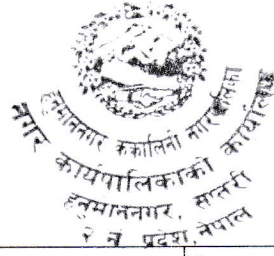 हनुमाननगर कंकालिनी नगरपालिका
नगर कार्यपालिकाको कार्यालय
हनुमाननगर, सप्तरी
२ नं प्रदेश, नेपाल